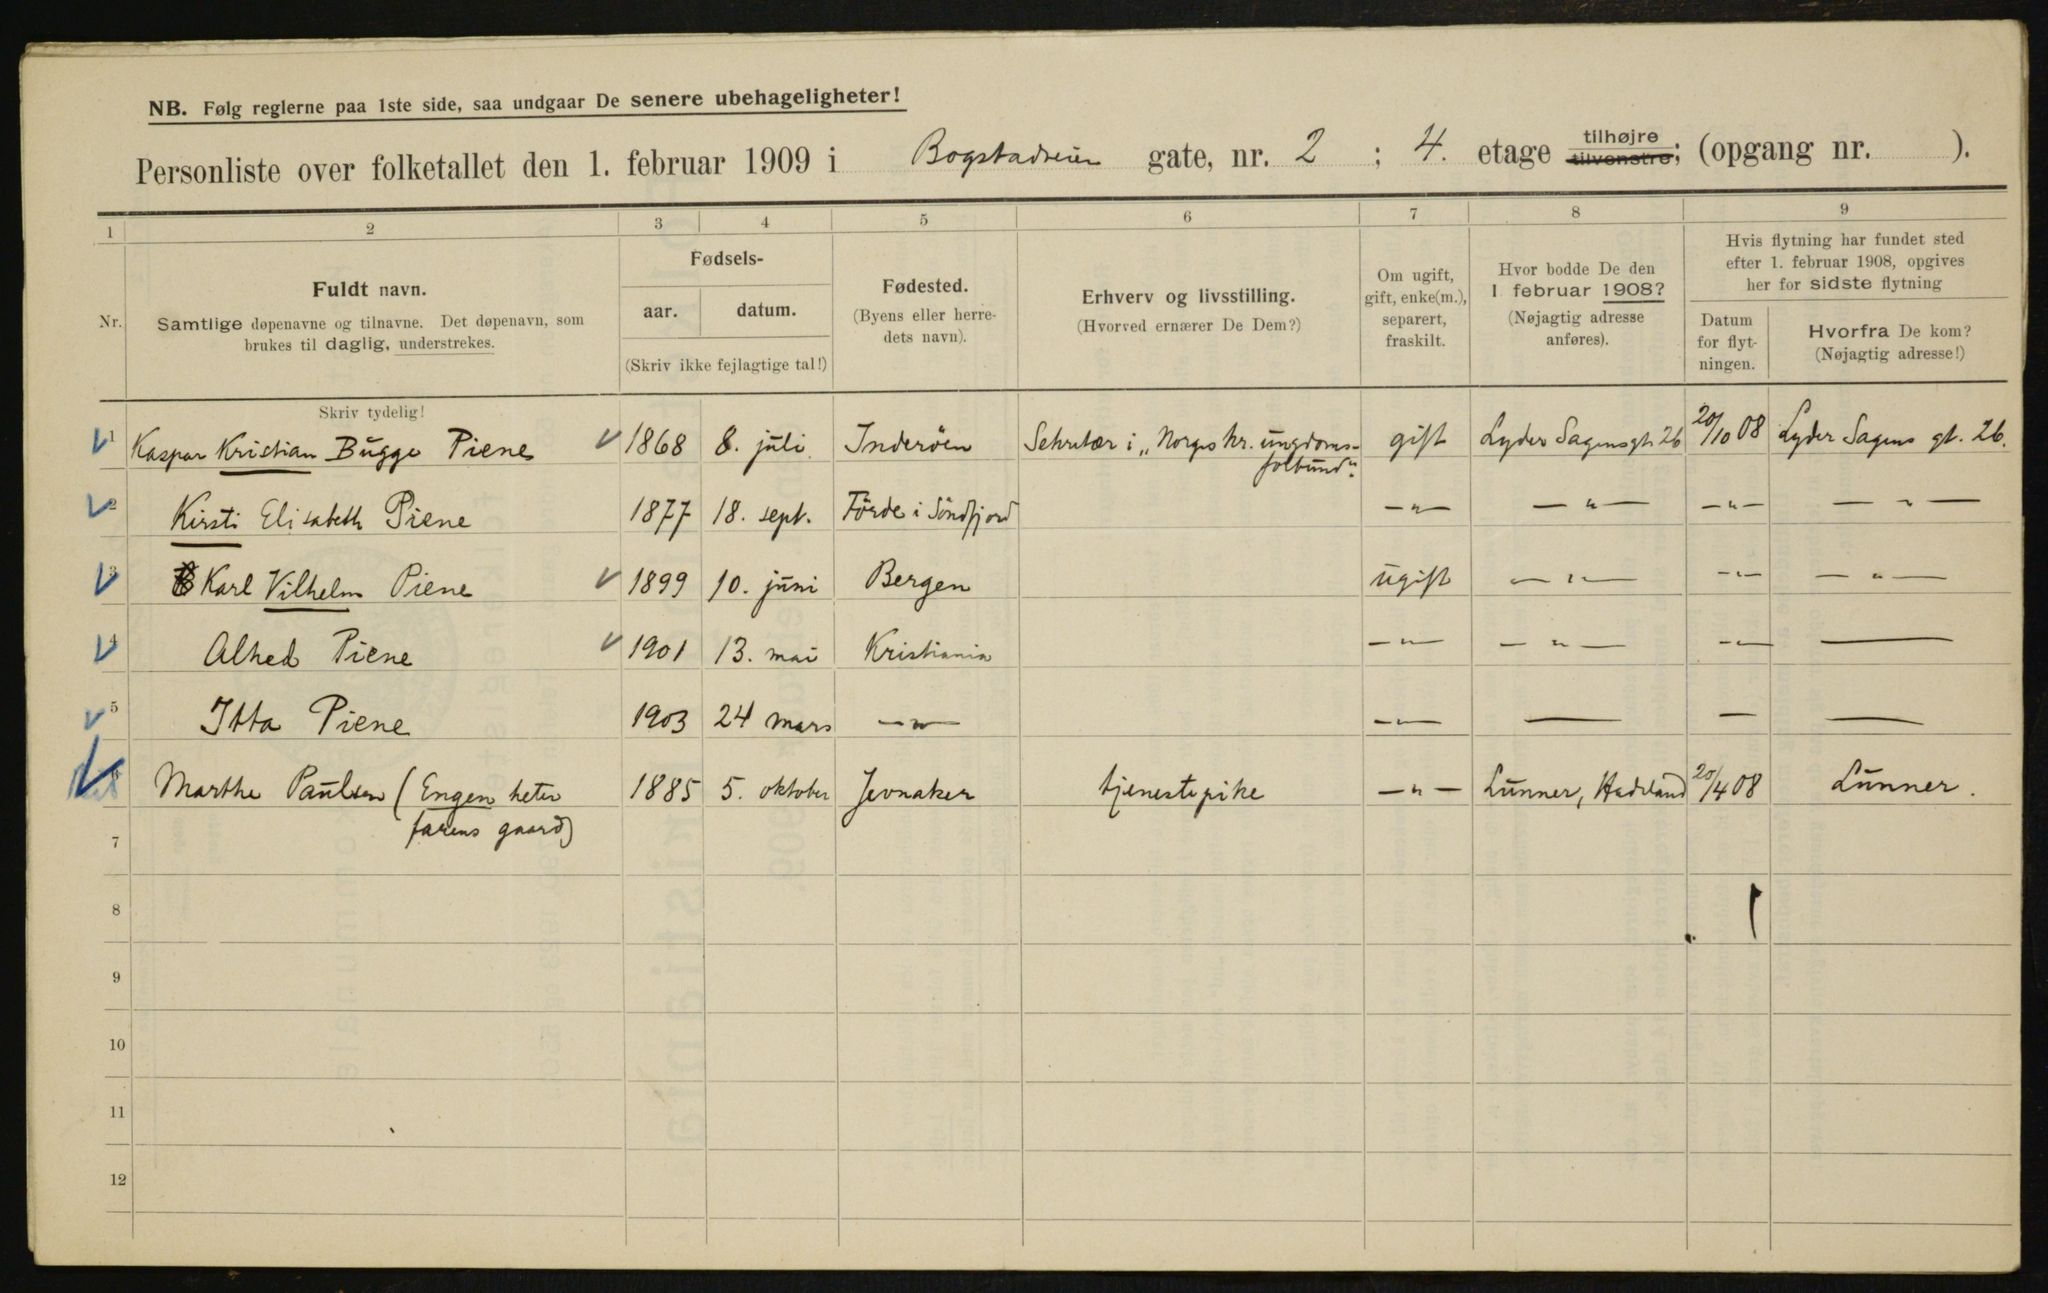 NB. Følg reglerne paa 1ste side, saa undgaar De senere ubehageligheter!
Personliste over folketallet den 1. februar 1909 i Bogstadveien gate, nr. 2 ; 4. etage tilhøjre tilvenstre; (opgang nr. ).
1 2 3 4 5 6 7 8 9
Nr.
Fuldt navn.
Samtlige døpenavne og tilnavne. Det døpenavn, som
brukes til daglig, understrekes.
Skriv tydelig!
Fødsels-
aar. datum.
(Skriv ikke fejlagtige tal!)
Fødested.
(Byens eller herre-
dets navn).
Erhverv og livsstilling.
(Hvorved ernærer De Dem?)
Om ugift,
gift, enke(m.),
separert,
fraskilt.
Hvor bodde De den
1 februar 1908?
(Nøjagtig adresse
anføres).
Hvis flytning har fundet sted
efter 1. februar 1908, opgives
her for sidste flytning
Datum
for flyt-
ningen.
Hvorfra De kom?
(Nøjagtig adresse!)
1 Kaspar Kristian Bugge Piene 1868 8. juli Inderöen Sekretær i „Norges kr. ungdoms- gift Lyder Sagensgt 26 20/10 08 Lyder Sagens gt. 26.
forbund".
2 Kirsti Elisabeth Piene 1877 18. sept. Förde i Söndfjord —"— —"— —"— —"—
3 Karl Vilhelm Piene 1899 10. juni Bergen ugift —"— —"— —"—
4 Alhed Piene 1901 13. mai Kristiania —"— —"— —"— —
5 Itta Piene 1903 24 mars —"— —"— — — —
6 Marthe Paulsen (Engen heter 1885 5. oktober Jevnaker tjenestepike —"— Lunner, Hadeland 20/4 08 Lunner.
farens gaard)
7
8
9
10
11
12